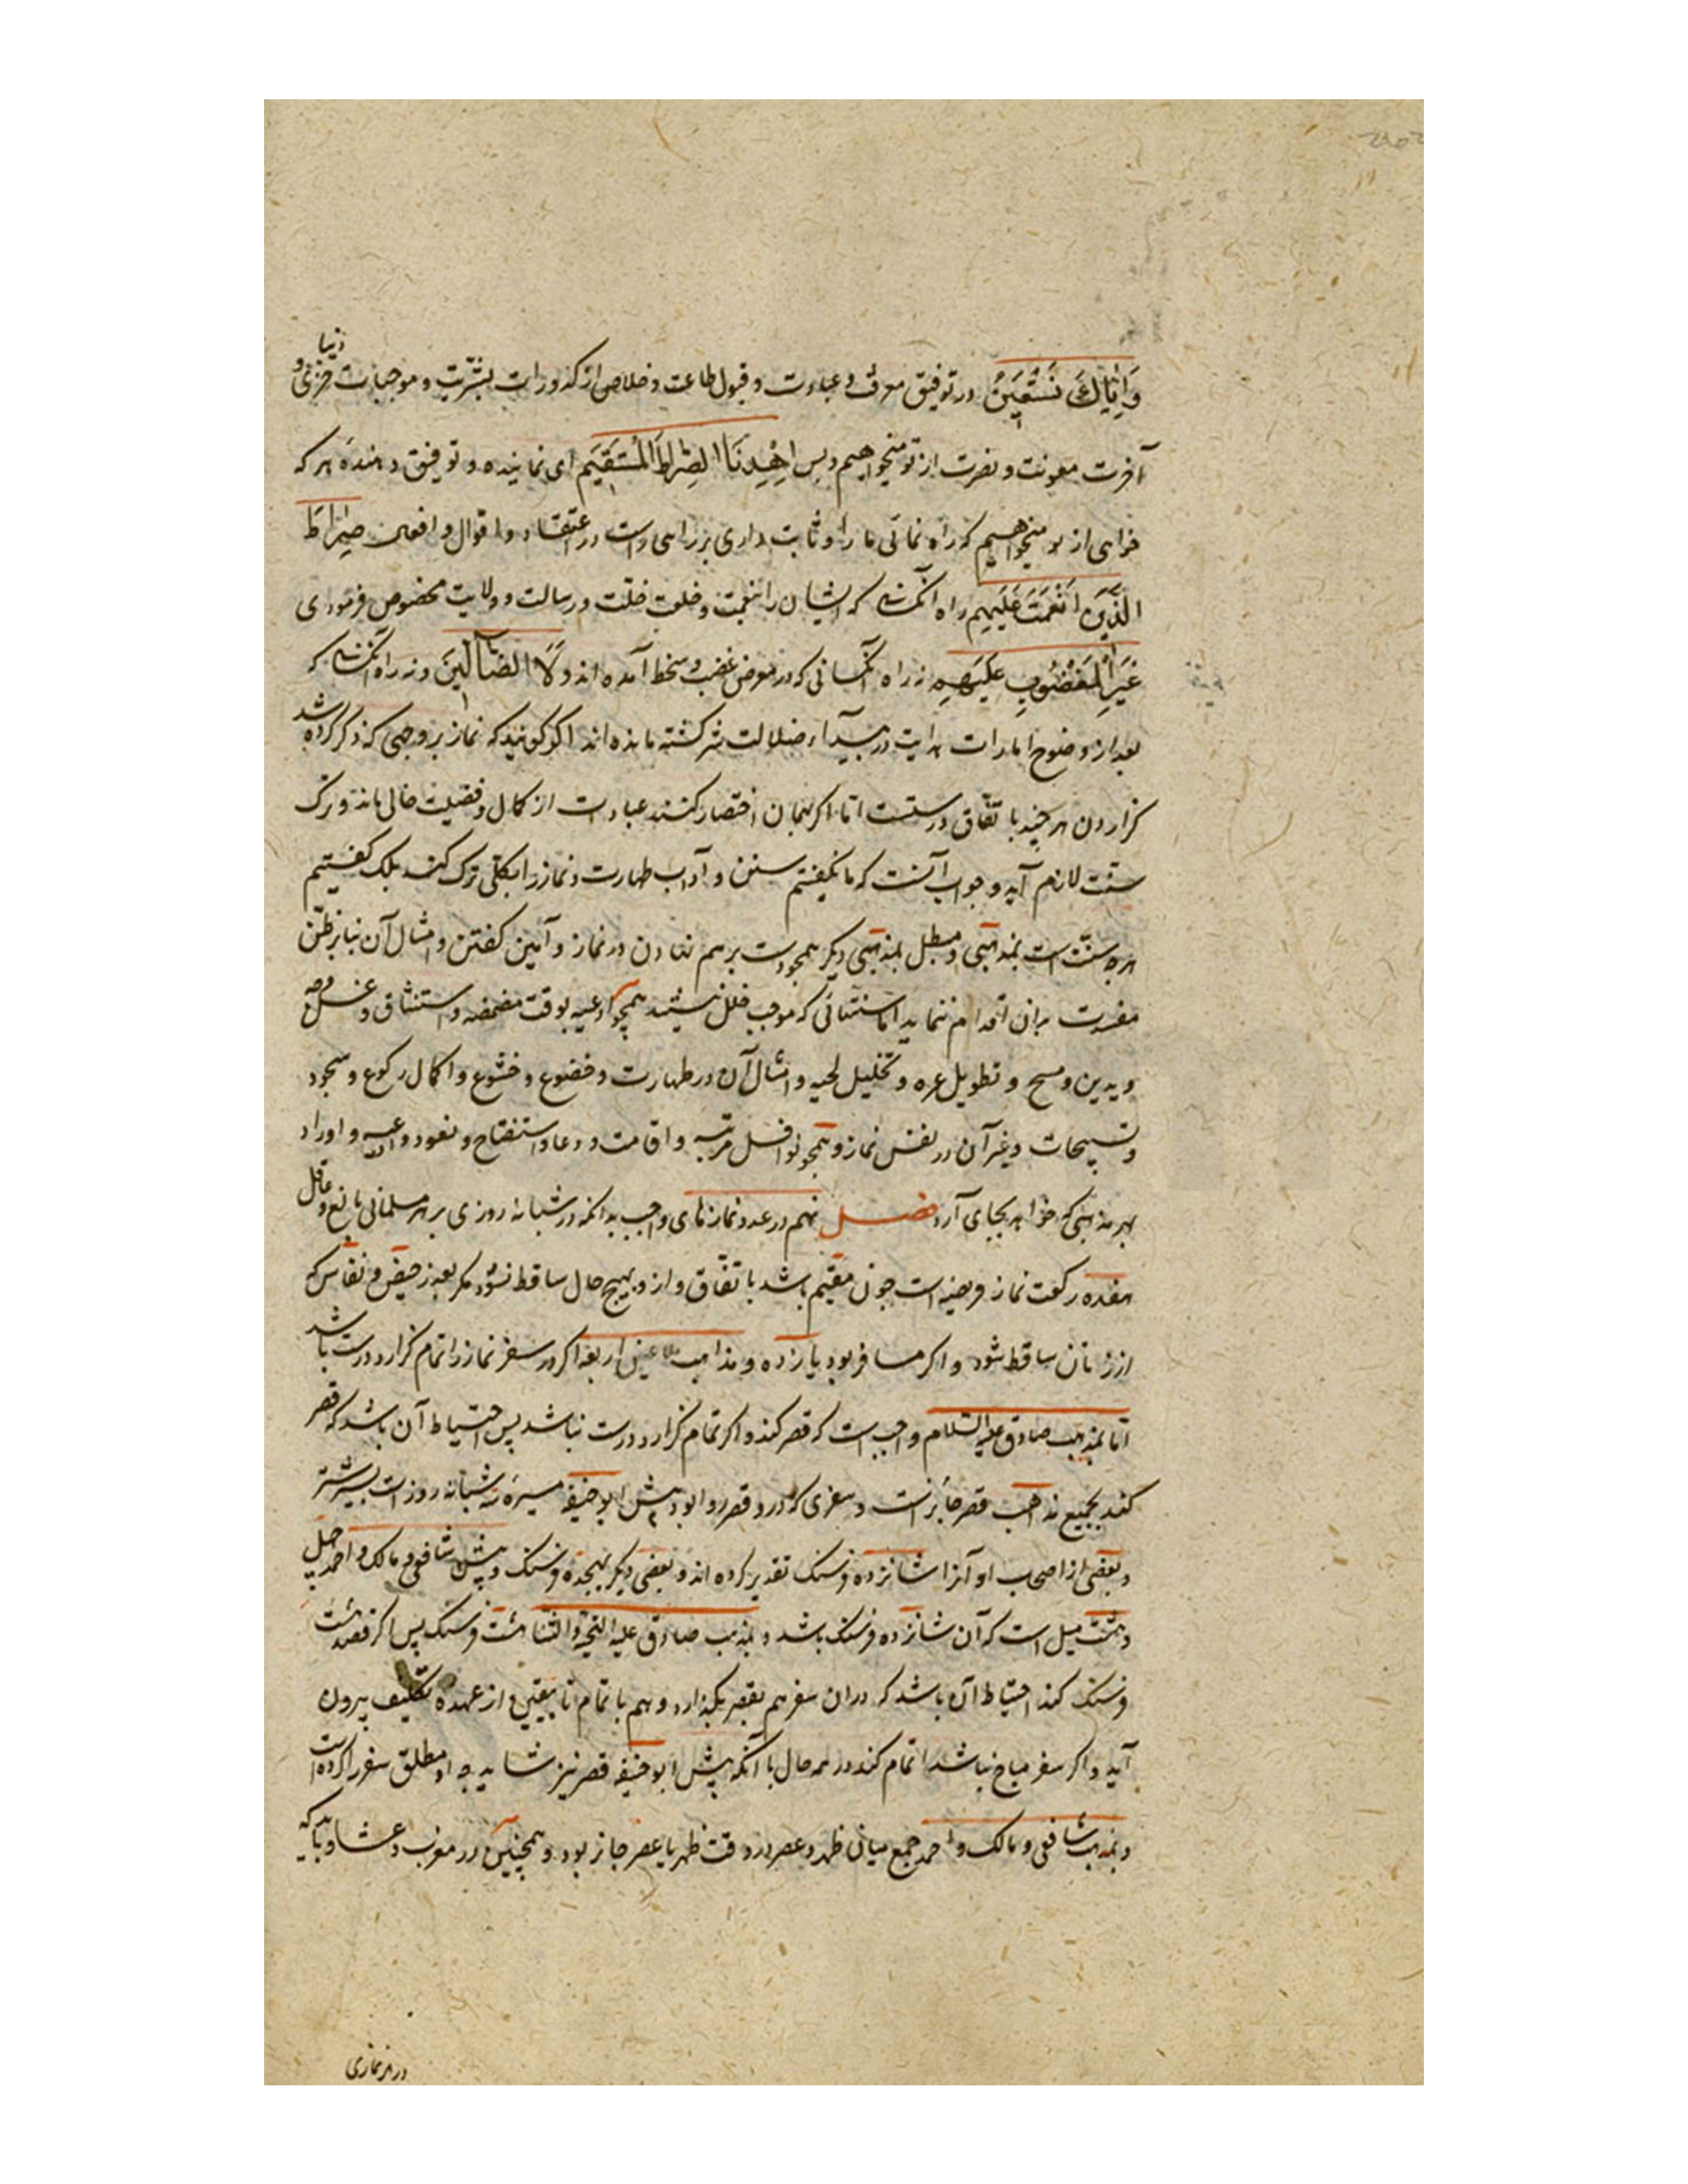 وَاِيَّاكَ نَسْتَعِينُ در توفیق معرفت و عبادت و قبول طاعت و خلاص از کدورات بشریت و موجبات خزی دنیا و
آخرت معونت و نصرت از تو میخواهیم و بس اِهْدِنَا الصِّرَاطَ المُسْتَقِيَم ای نماینده و توفیق دهنده هر که
خواهی از تو میخواهیم که راه نمائی ما را و ثابت داری بر راهی راست در اعتقاد و اقوال و افعال صِرَاطَ
الَّذِينَ اَنْعَمْتَ عَلَيْهِم راه آنکسان که ایشان را بنعمت و خلعت خلت و رسالت و ولایت مخصوص فرمودی
غَيْرِ الْمَغْضُوبِ عَلَيْهِم نه راه آنکسانی که در معرض غضب و سخط آمده اند وَلَا الضَّالِّينَ و نه راه آنکسان که
بعد از وضوح امارات هدایت در بیدآء ضلالت سرکشته مانده اند اکر کویند که نماز بر وجهی که ذکر کرده شد
کزاردن هر چند باتفاق درستست اما اکر بهمان اختصار کنند عبادت از کمال و فضیلت خالی ماند و ترک
سنت لازم آید و جواب آنست که ما نکفتیم سنن و آداب طهارت و نماز را بکلی ترک کنند بلک کفتیم
هرچه سنّت است بمذهبی و مبطل بمذهبی دیکر همچو دست بر هم نهادن در نماز و آمین کفتن و امثال آن بنا بر ظن
مضرت بران اقدام ننماید اما سنتهائی که موجب خلل نیستند همچو ادعیه بوقت مضمضه و استنشاق و غسل وجه
و یدین و مسح و تطویل غره و تخلیل لحیه و امثال آن در طهارت و خضوع و خشوع و اکمال رکوع و سجود
و تسبیحات و غیر آن در نفس نماز و همچو نوافل مرتبه و اقامت و دعاء استفتاح و تعوذ و ادعیه و اوراد
بهر مذهبی که خواهد بجای آرد فصل نهم در عدد نمازهای واجب بدانکه در شبانه روزی بر هر مسلمانی بالغ و عاقل
هفده رکعت نماز فریضه است چون مقیم باشد باتفاق و ازو بهیچ حال ساقط نشود مکر بعذر حیض و نفاس که
از زنان ساقط شود و اکر مسافر بود یازده و مذاهب اربعه اکر در سفر نماز را تمام کزارد درست باشد
اما بمذهب صادق علیه السّلام واجب است که قصر کند و اکر تمام کزارد درست نباشد پس احتیاط آن باشد که قصر
کند بجمیع مذاهب قصر جائز است و سفری که درو قصر روا بود پیش ابو حنیفه مسیره سه شبانه روز است بیشتر
و بعضی از اصحاب او آنرا شانزده فرسنک تقدیر کرده اند و بعضی دیکر بهجده فرسنک و پیش شافعی و مالک و احمد چهل
و هشت میل است که آن شانزده فرسنک باشد و بمذهب صادق علیه التحیة والثنا هشت فرسنک پس اکر قصد هشت
فرسنک کند احتیاط آن باشد که دران سفر هم بقصر بکذارد و هم باتمام تا بیقین از عهده تکلیف بیرون
آید و اکر سفر مباح نباشد اتمام کند در همه حال با آنکه پیش ابو حنیفه قصر نیز شاید چه او مطلق سفر را کرده است
و بمذهب شافعی و مالک و احمد جمع میانی ظهر و عصر در وقت ظهر یا عصر جائز بود و همچنین در مغرب و عشا و باید که
در هر نمازی